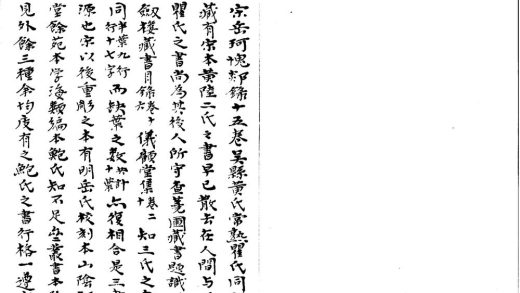 宋岳珂愧郯錄十五卷吳縣黃氏常熟瞿氏同
藏有宋本黃陸二氏之書早已散去在人間与
瞿氏之書尚為其後人所守查蕘圃藏書題識
劔樓藏書目錄卷十六儀顧堂集卷十二知三氏之
同半葉九行行十七字而缺葉之數共計十葉亦復相合是三
源也宋以後重彫之本有明岳氏校刻本山陰
堂餘苑本学海類編本鮑氏知不足齋叢書本
見外餘三種余均度有之鮑氏之書行格一遵